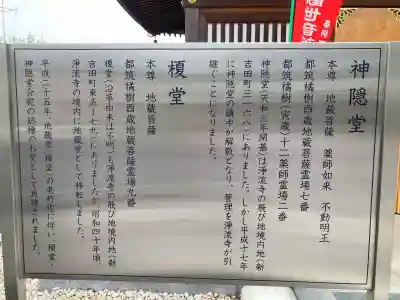 神隠堂
本尊　地蔵菩薩　薬師如来　不動明王
都筑橘樹酉歳地蔵菩薩霊場七番
都筑橘樹(寅歳)十二薬師霊場二番
神隠堂(天和三年開基)は浄流寺の飛び地境内地(新
吉田町三二一六八)にありました。しかし平成十七年
に神隠堂の講中が解散となり、管理を浄流寺が引
継ぐことになりました。
榎堂
本尊　地蔵菩薩
都筑橘樹酉歳地蔵菩薩霊場九番
榎堂(沿革由来は不明)も浄流寺の飛び地境内地(新
吉田町東五ー七九)にありましたが、昭和四十年頃、
浄流寺の境内に地蔵堂として移転しました。
平成二十五年、地蔵堂(榎堂)の老朽化に伴い、榎堂・
神隠堂合祀の総檜のお堂として再建されました。